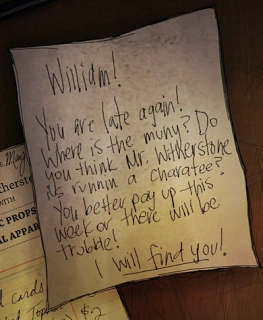 William!
You are late again!
Where is the muny? Do
you think Mr. Witherstone
is runnin a charatee?
You better pay up this
week or there will be
trubble!
I will find you!
therst
WITH
C PROPS
AL APPAR
d cards
$2